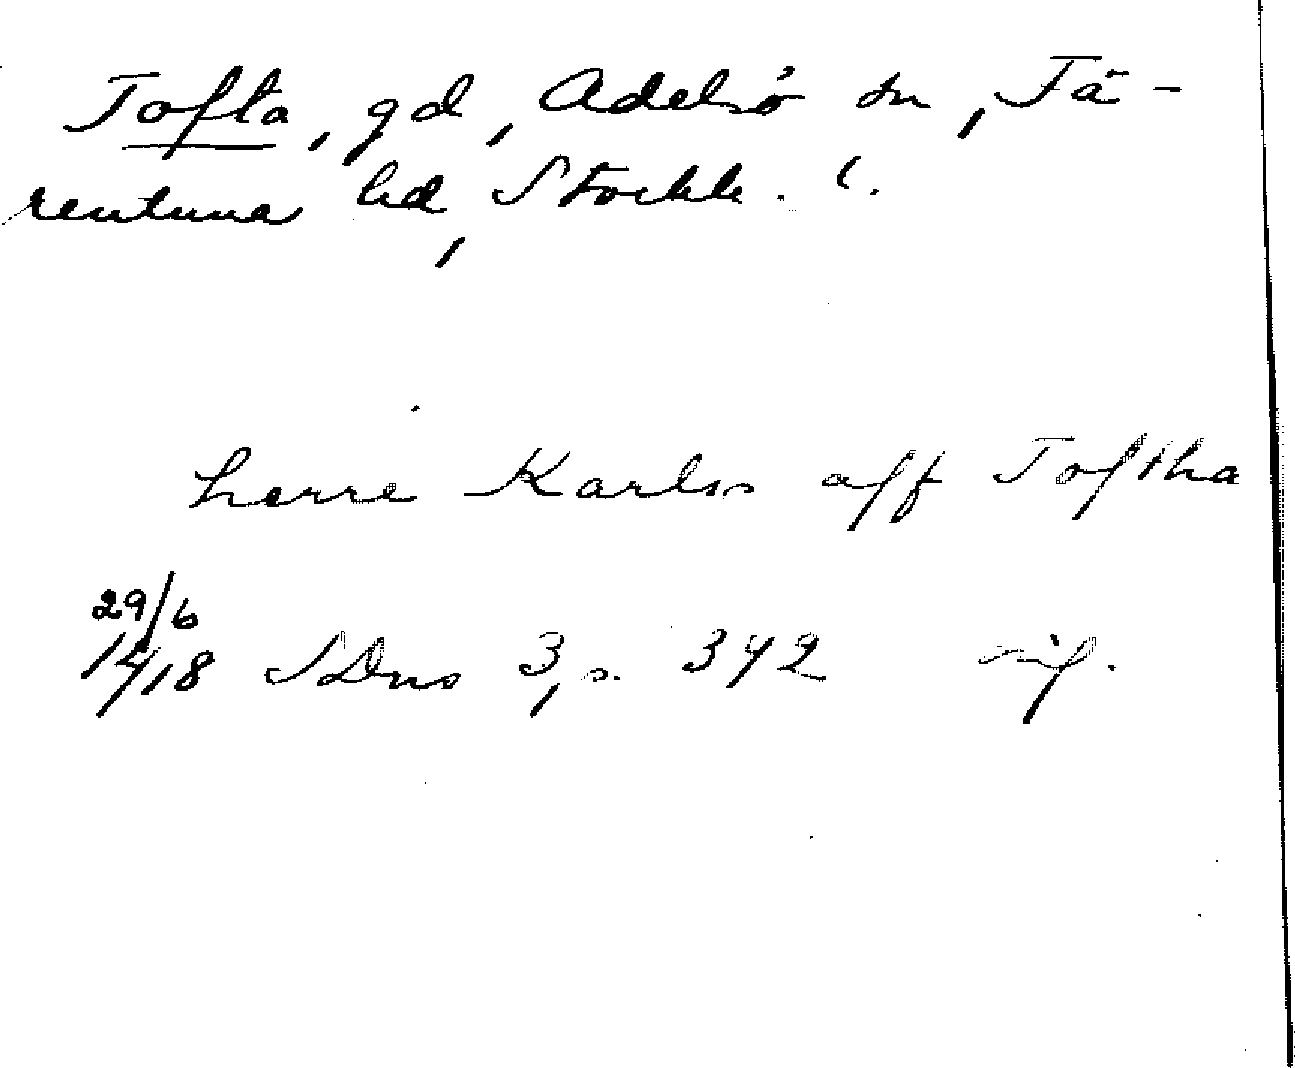 Tofta, gd, Adelsö sn, Fä-
rentuna hd, Stockh. l.
herre Karls aff Toftha
29/6
1418 SDns 3, s. 342